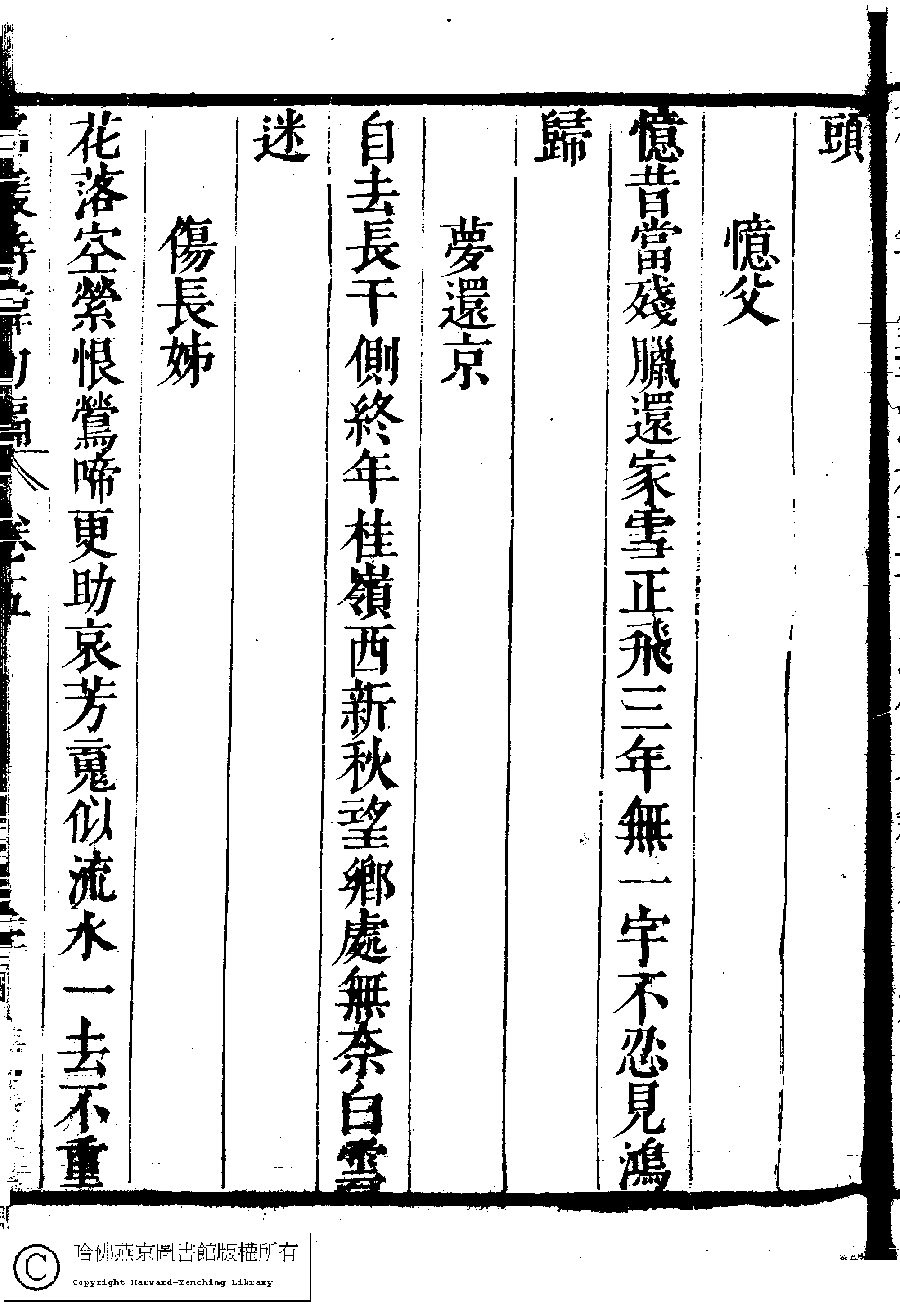 頭
憶父
憶昔當殘臘還家雪正飛三年無一字不忍見鴻
歸
夢還京
自去長干側終年桂嶺西新秋望鄉處無奈白雲
迷
傷長姊
花落空縈恨鶯啼更助哀芳䰟似流水一去不重
卷五
哈佛燕京圖書館版權所有
Copyright Harvard-Yenching Library